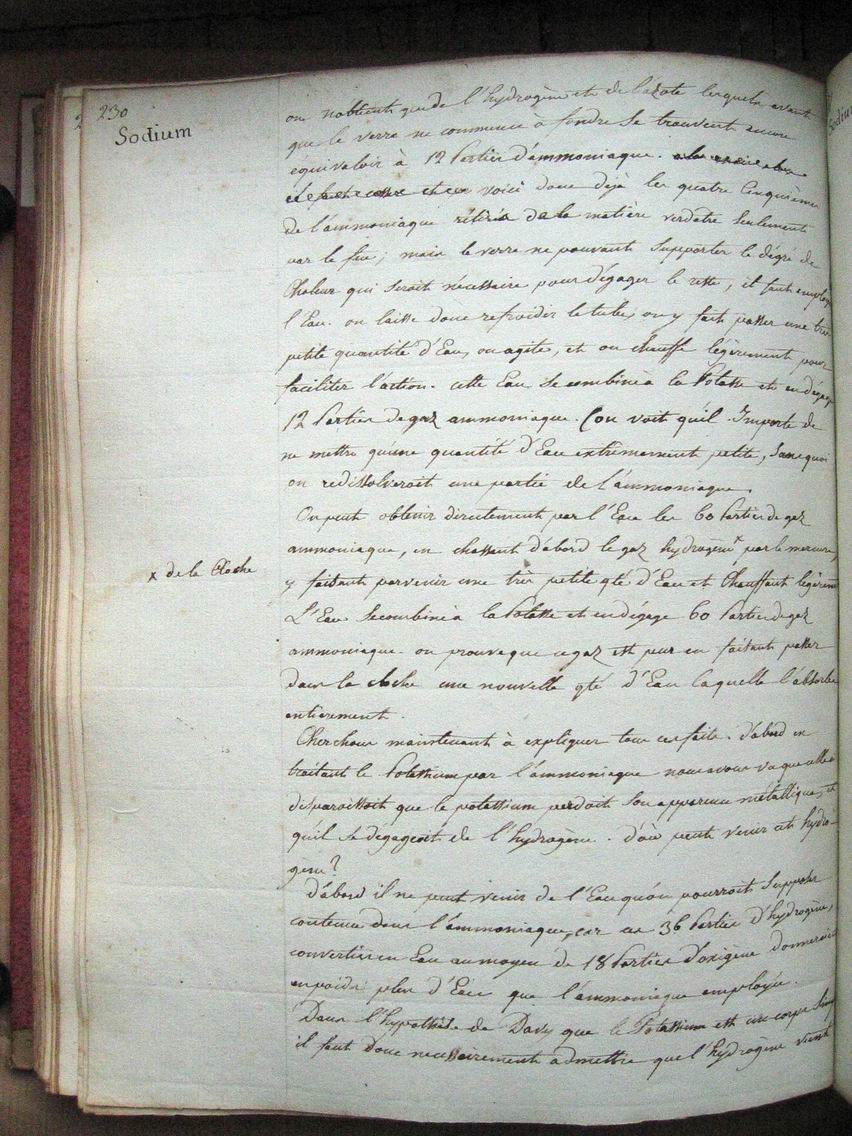 230
Sodium
on n'obtient que de l'hydrogène et de l'azote lesquels avant
que le verre ne commence à fondre se trouvent encore
équivaloir à 12 Parties d'ammoniaque.
voici donc déjà les quatre cinquièmes
de l'ammoniaque retirés de la matière verdatre seulement
par le feu; mais le verre ne pouvant supporter le dégré de
Chaleur qui seroit nécessaire pour dégager le reste, il faut employer
l'Eau. on laisse donc refroidir le tube, on y fait passer une très
petite quantité d'Eau, on agite, et on chauffe légèrement pour
faciliter l'action. cette Eau se combine à la Potasse et en dégage
12 Parties de gaz ammoniaque. (on voit qu'il Importe de
ne mettre qu'une quantité d'Eau extrêmement petite, sans quoi
on redissolveroit une partie de l'ammoniaque.
On peut obtenir directement par l'Eau les 60 Parties de gaz
ammoniaque, en chassant d'abord le gaz hydrogène x par le mercure,
x de la Cloche
y faisant parvenir une très petite qté d'Eau et Chauffant légèrem
L'Eau se combine à la Potasse et en dégage 60 Parties de gaz
ammoniaque. on prouve que ce gaz est pur en faisant passer
dans la cloche une nouvelle qté d'Eau laquelle l'absorbe
entièrement.
Cherchons maintenant à expliquer tous ces faits. d'abord en
traitant le Potassium par l'ammoniaque nous avons vu que celle-ci
disparoissoit que le potassium perdoit son apparence métallique, et
qu'il se dégageoit de l'hydrogène. d'où peut venir cet hydro-
gène?
d'abord il ne peut venir de l'Eau qu'on pourroit supposer
contenue dans l'ammoniaque, car ces 36 Parties d'hydrogène,
converties en Eau au moyen de 18 Parties d'oxigène donneroient
en poids plus d'Eau que l'ammoniaque employée.
Dans l'hypothèse de Davy que le Potassium est un corps simple
il faut donc nécessairement admettre que l'hydrogène vient
Sodium